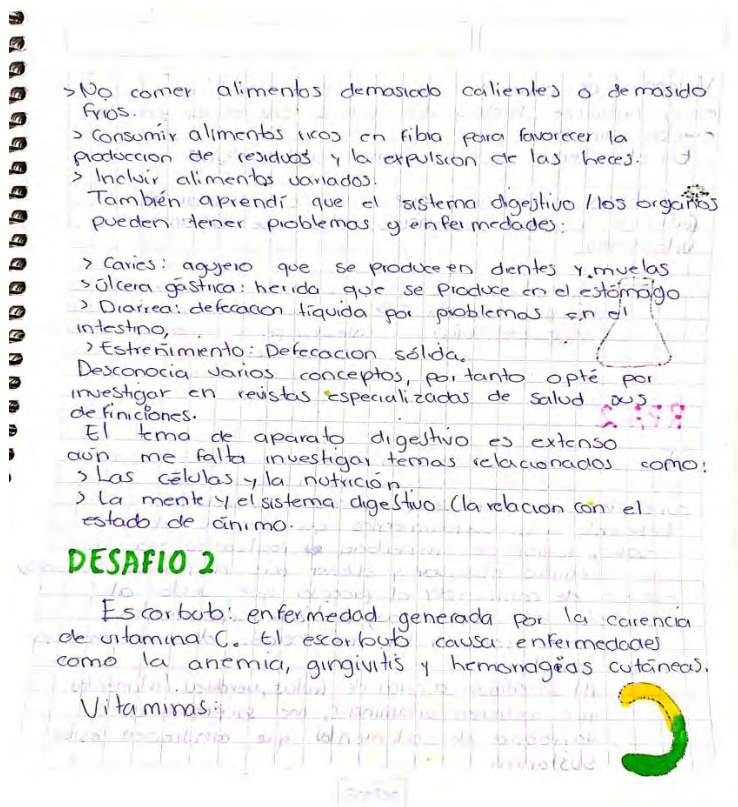 > No comer alimentos demasiado calientes o demasido
frios.
> Consumir alimentos ricos en fibra para favorecer la
produccion de residuos y la expulsion de las heces.
> Incluir alimentos variados.
También aprendí que el sistema digestivo / los organos
pueden tener problemas y enfermedades:
> Caries: agujero que se produce en dientes y muelas
> Ulcera gástrica: herida que se produce en el estómago
> Diarrea: defecacion líquida por problemas en el
intestino,
> Estreñimiento: Defecacion sólida.
Desconocia varios conceptos, por tanto opté por
investigar en revistas especializadas de salud sus
definiciones.
El tema de aparato digestivo es extenso
aún me falta investigar temas relacionados como:
> Las células y la nutrición
> La mente y el sistema digestivo (la relacion con el
estado de ánimo.
DESAFIO 2
Escorbuto: enfermedad generada por la carencia
de vitamina C. El escorbuto causa enfermedades
como la anemia, gingivitis y hemorragias cutáneas.
Vitaminas: